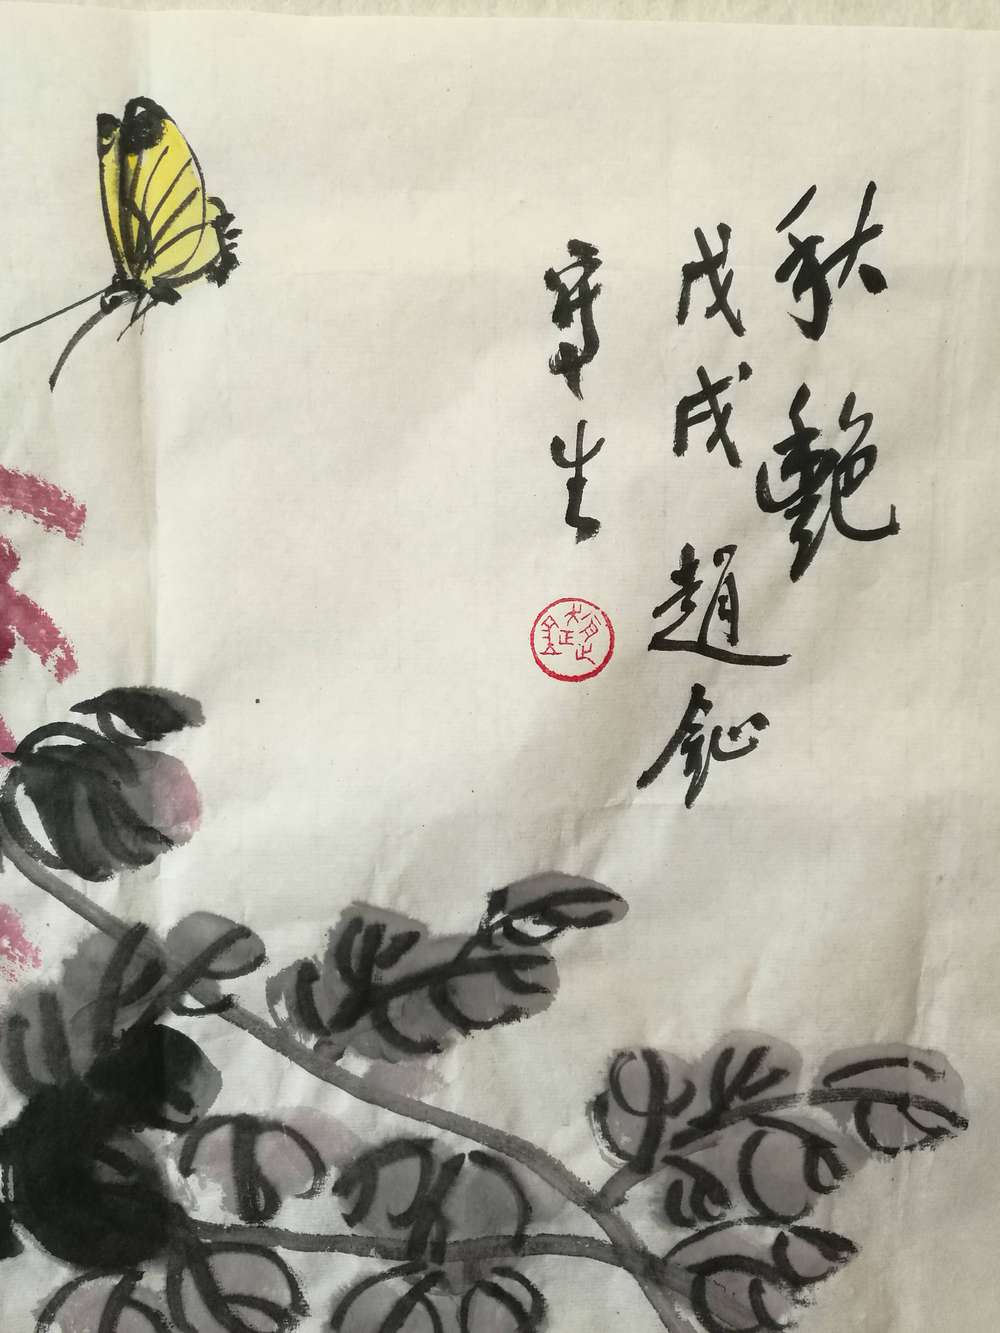 秋艷
戊戌趙鉦
寫生